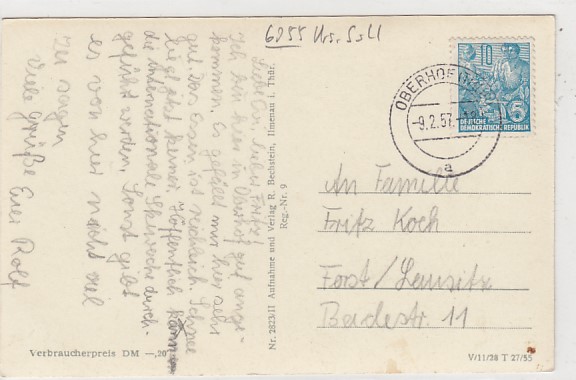 6255 Urs. SsU
Liebe Ciri, lieber Fritz!
Ich bin hier in Oberhof gut ange-
kommen. Es gefällt mir hier sehr
gut. Das Essen ist reichlich. Schnee
liegt jetzt keiner. Hoffentlich kann
die Internationale Skiwoche durch-
geführt werden. Sonst gibt
es von hier nicht viel
zu sagen
Viele Grüße Euer Rolf
Verbraucherpreis DM —,20
Nr. 2823/II Aufnahme und Verlag R. Bechstein, Ilmenau i. Thür.
Reg.-Nr. 9
OBERHOF
-9.2.57
a
10
5
DEUTSCHE
DEMOKRATISCHE REPUBLIK
An Familie
Fritz Koch
Forst/Lausitz
Badestr. 11
V/11/28 T 27/55